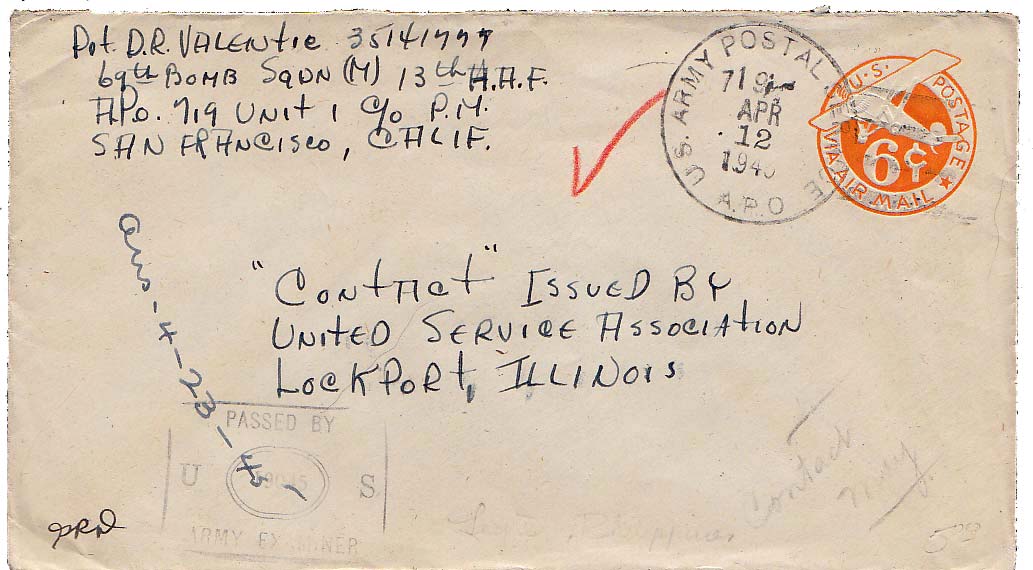 Pvt. D.R. VALENTIC 35141777
69th BOMB SQDN (M) 13th A.A.F.
A.P.O. 719 UNIT 1 c/o P.M.
SAN FRANCISCO, CALIF.
U.S. ARMY POSTAL SERVICE
APR
12
A.P.O.
U.S. POSTAGE
6¢
VIA AIR MAIL
Ans-4-23-45
"CONTACT" ISSUED BY
UNITED SERVICE ASSOCIATION
LOCKPORT, ILLINOIS
PASSED BY
U S
ARMY EXAMINER
Contact
Philippines